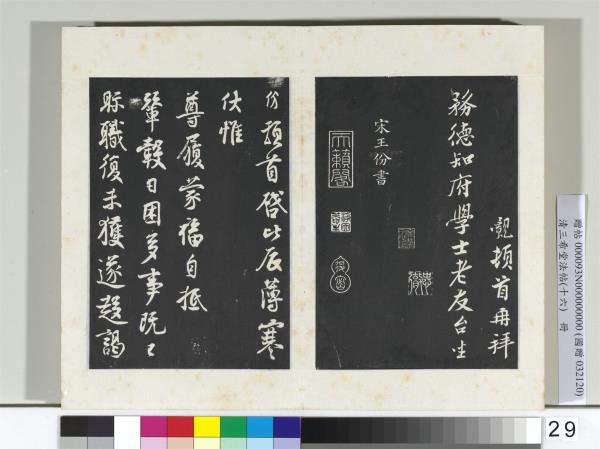 覿頓首再拜
務德知府學士老友台坐
宋王份書
天籟閣
份頓首啓比辰薄寒
伏惟
尊履蒙福自抵
輦轂日困多事既
職復未獲遂謁
贈帖 000093N000000000 (國贈 032120)
清三希堂法帖(十六) 冊
29